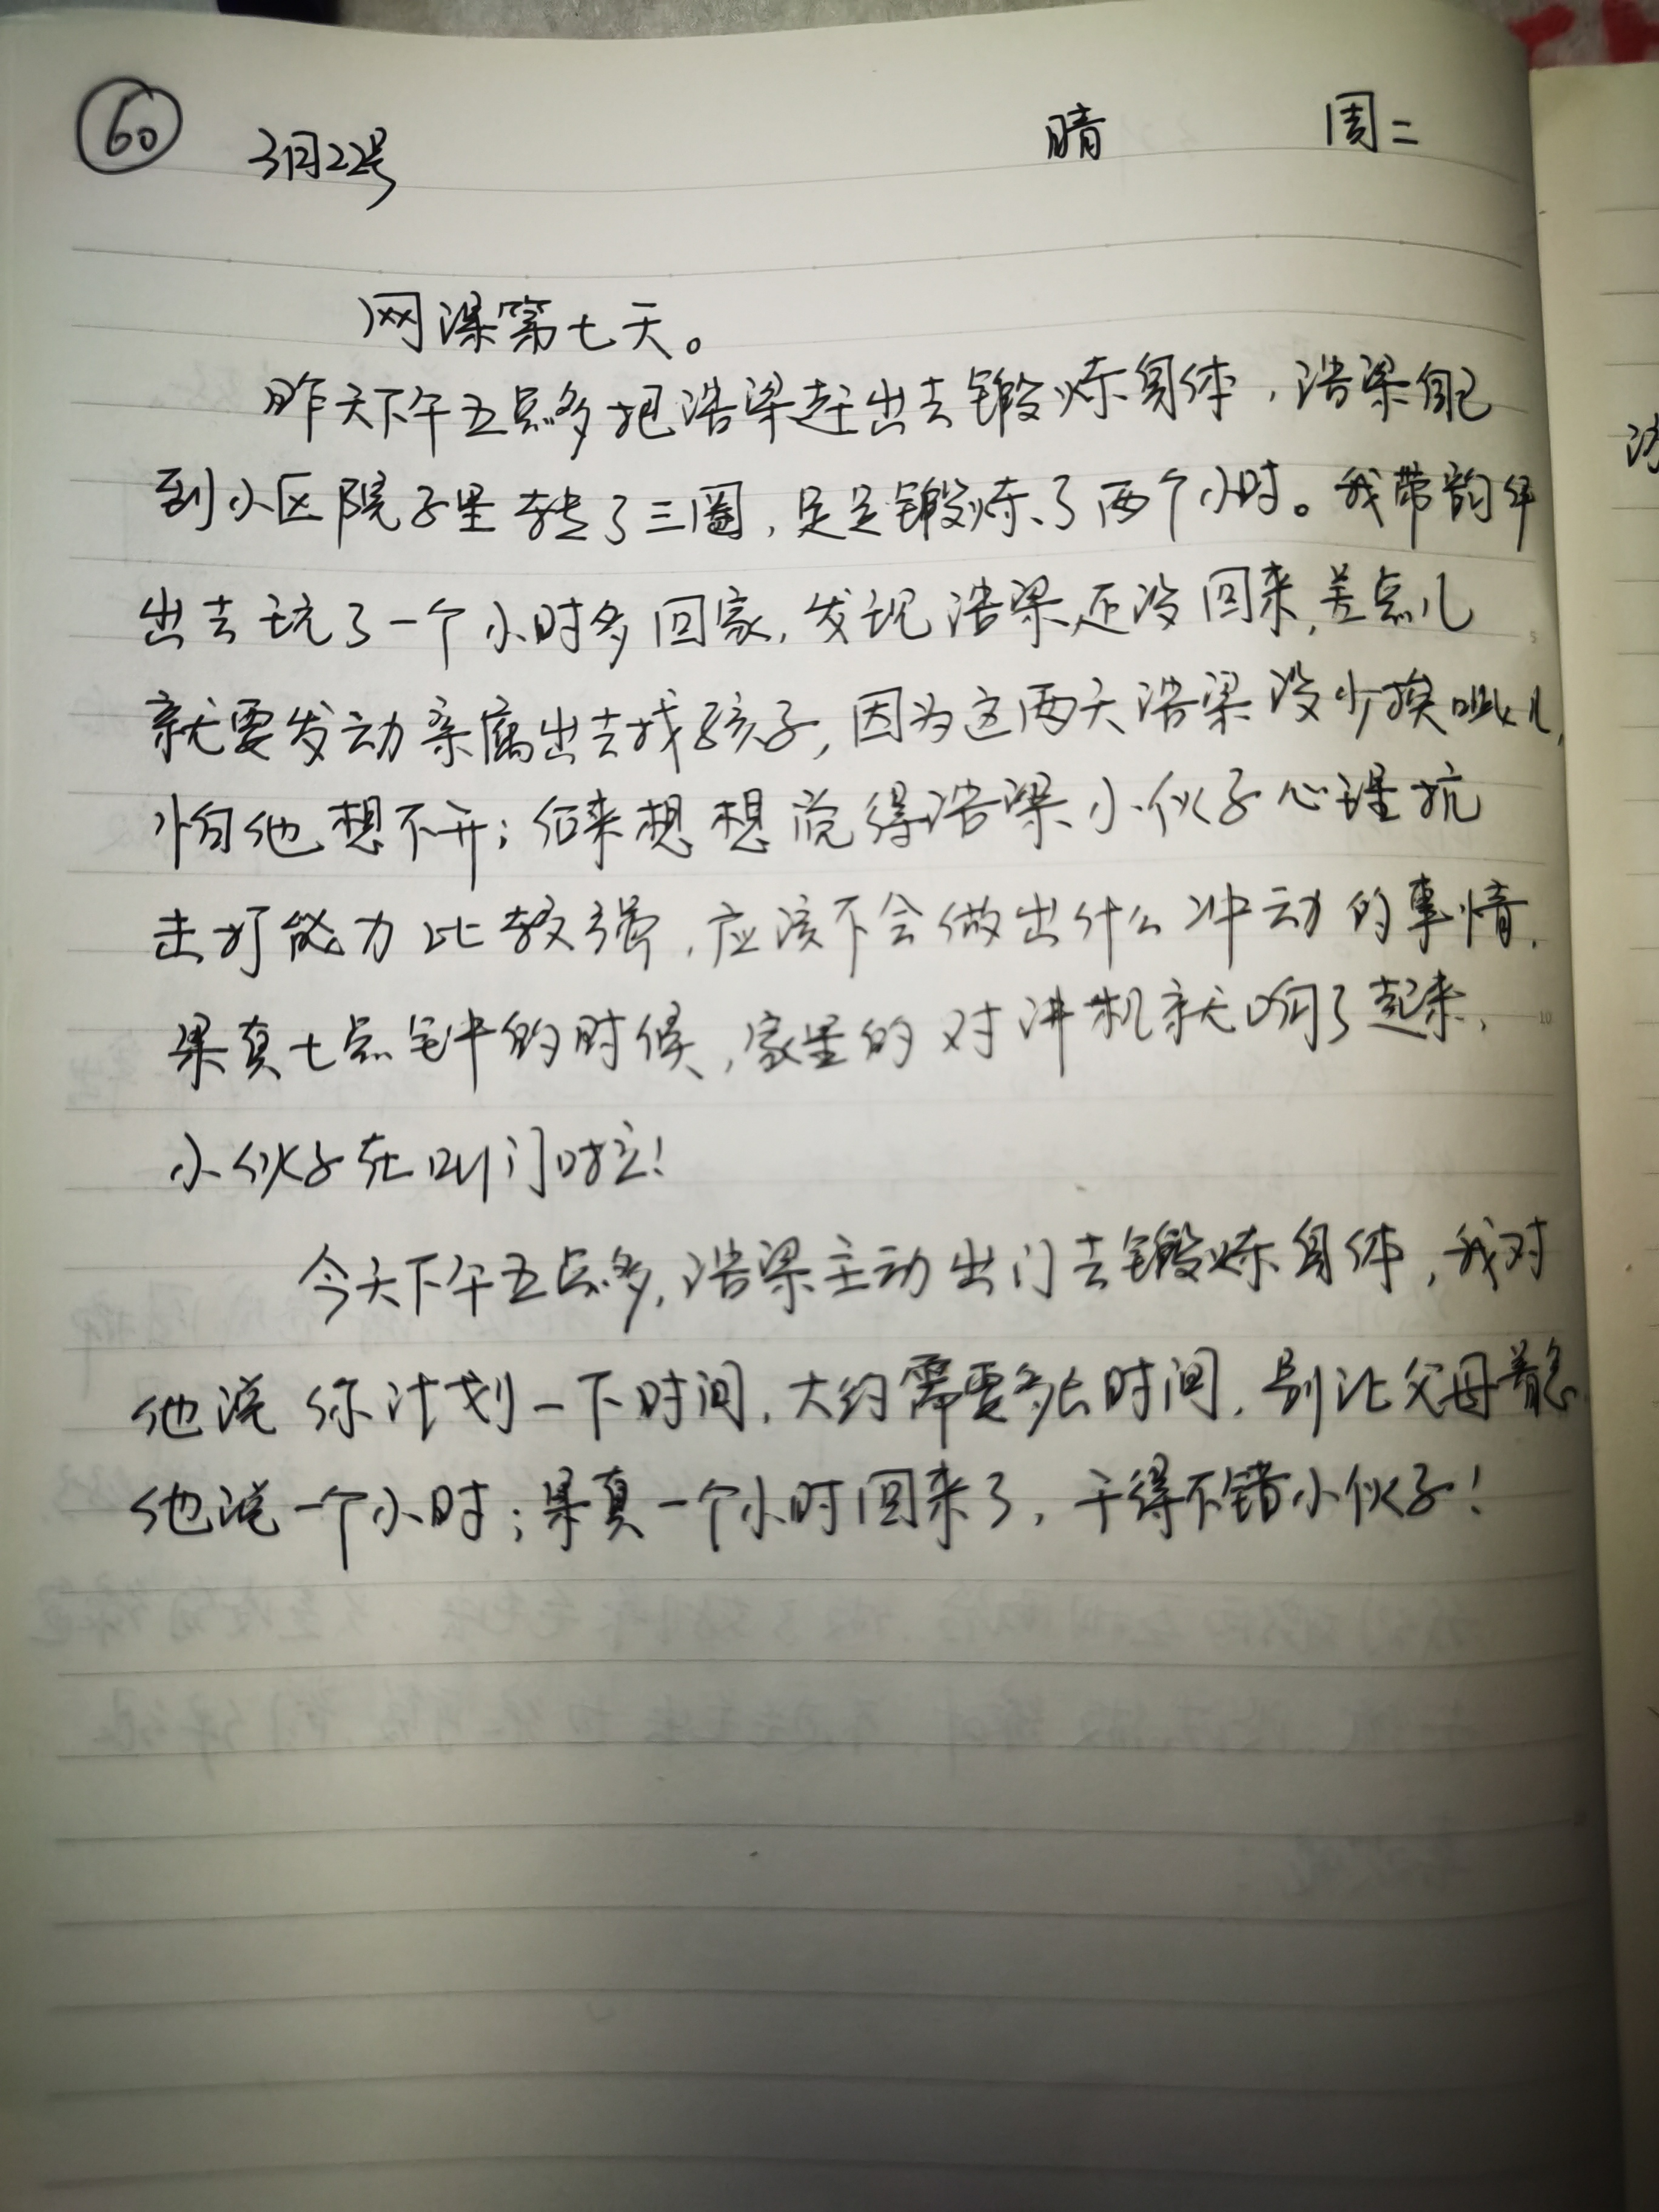 60 3月22号 晴 周二
网课第七天。
昨天下午五点多把浩梁赶出去锻炼身体，浩梁自己
到小区院子里转了三圈，足足锻炼了两个小时。我带韵
出去玩了一个小时多回家，发现浩梁还没回来，差点儿
就要发动亲属出去找孩子，因为这两天浩梁没少挨呲儿，
怕他想不开；后来想想觉得浩梁小伙子心理抗
击打能力比较强，应该不会做出什么冲动的事情，
果真七点半的时候，家里的对讲机就响了起来，
小伙子在叫门啦！
今天下午五点多，浩梁主动出门去锻炼身体，我对
他说 你计划一下时间，大约需要多长时间，别让父母着急
他说一个小时；果真一个小时回来了，干得不错小伙子！